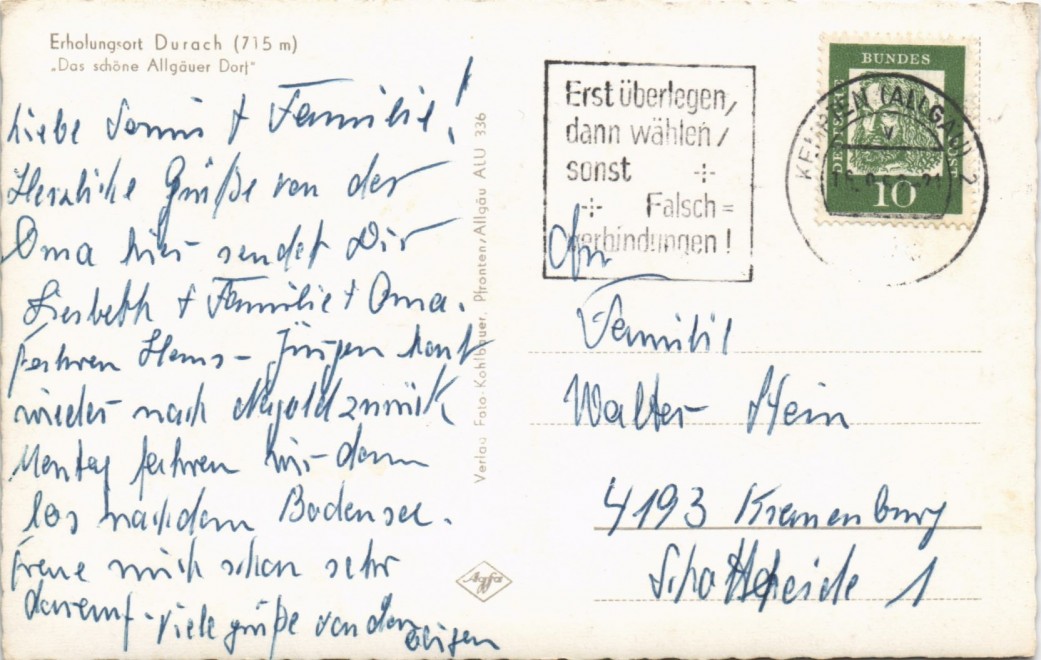 Erholungsort Durach (715 m)
„Das schöne Allgäuer Dorf"
Liebe & Familie!
Herzliche Grüße von der
Oma hier sendet Dir
Liesbeth + Familie + Oma.
fahren Hans-Jürgen
wieder nach Nagold zurück
Montag fahren wir dann
los nach dem Bodensee.
freue mich schon sehr
darauf. Viele grüße von den
Verlag Foto-Kohlbauer, Pfronten/Allgäu ALU 336
Agfa
Erst überlegen,
dann wählen,
sonst
Falsch=
verbindungen!
BUNDES
DEUTSCHE
POST
10
KEMPTEN (ALLGÄU) 2
v
An
Familie
Walter Hein
4193 Kranenburg
Schottheide 1